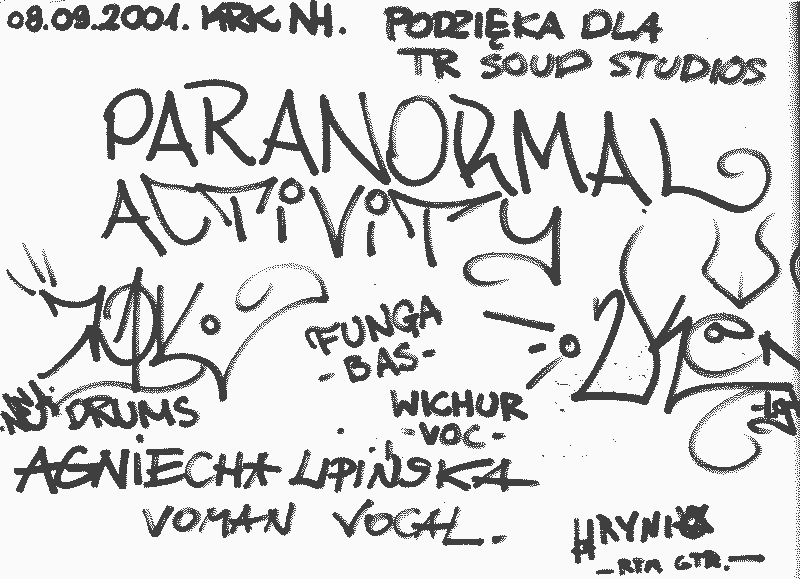 08.09.2001. KRK NH. PODZIĘKA DLA
TR SOUP STUDIOS
PARANORMAL
ACTiViTY
FUNGA
- BAS -
DRUMS
WICHUR
- VOC -
AGNIECHA LIPIŃSKA
VOMAN VOCAL.
HRYNIO
- RTM GTR. -